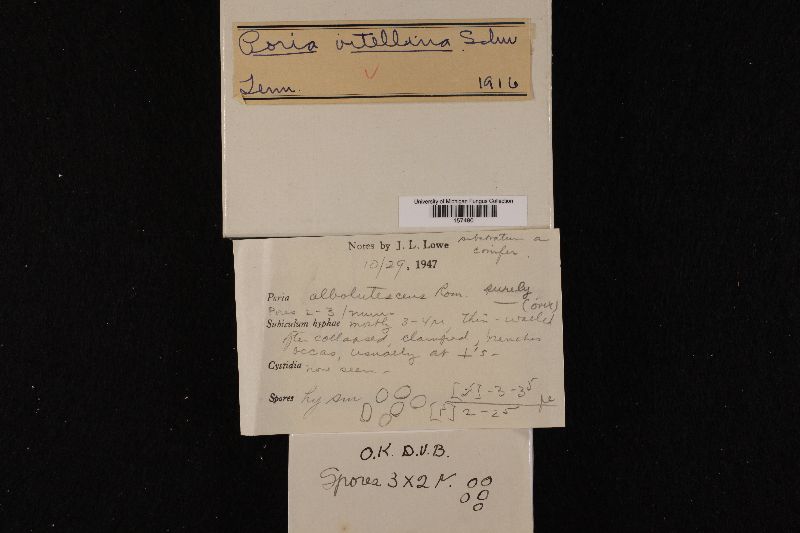 Poria vitellina Schw
Tenn. 1916
University of Michigan Fungus Collection
substratum a
Notes by J. L. Lowe conifer.
10/29, 1947
Poria albolutescens Rom. surely
Pores 2-3/mm. (over)
Subiculum hyphae mostly 3-4µ, thin-walled
often collapsed, clamped, branches
occas, usually at +'s-
Cystidia none seen-
Spores hy sm [f]-3-3⁵
[f] 2-2⁵ µ
O.K. D.V.B.
Spores 3×2 µ.